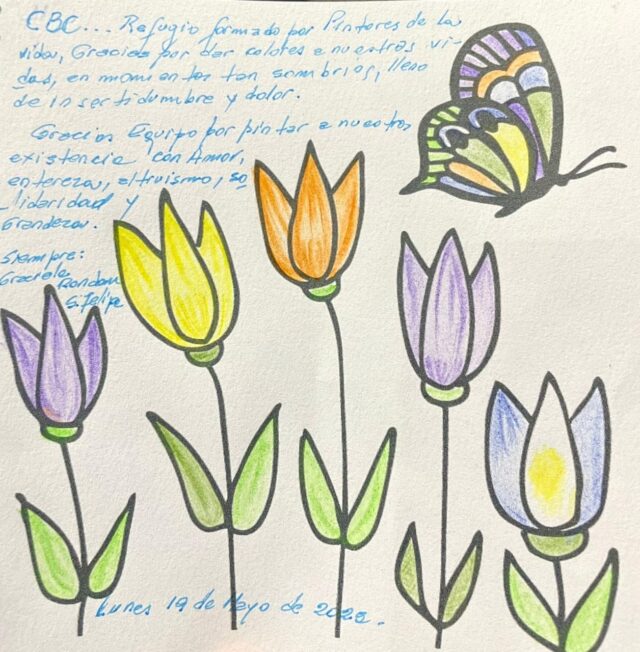 CBC... Refugio formado por Pintores de la
vida, Gracias por dar colores a nuestras vi-
das, en momentos tan sombrios, lleno
de insertidumbre y dolor.
Gracias Equipo por pintar a nuestra
existencia con Amor,
entereza, altruismo, so
lidaridad y
Grandeza.
Siempre:
Graciela
Rondon
S. Felipe
Lunes 19 de Mayo de 2025.